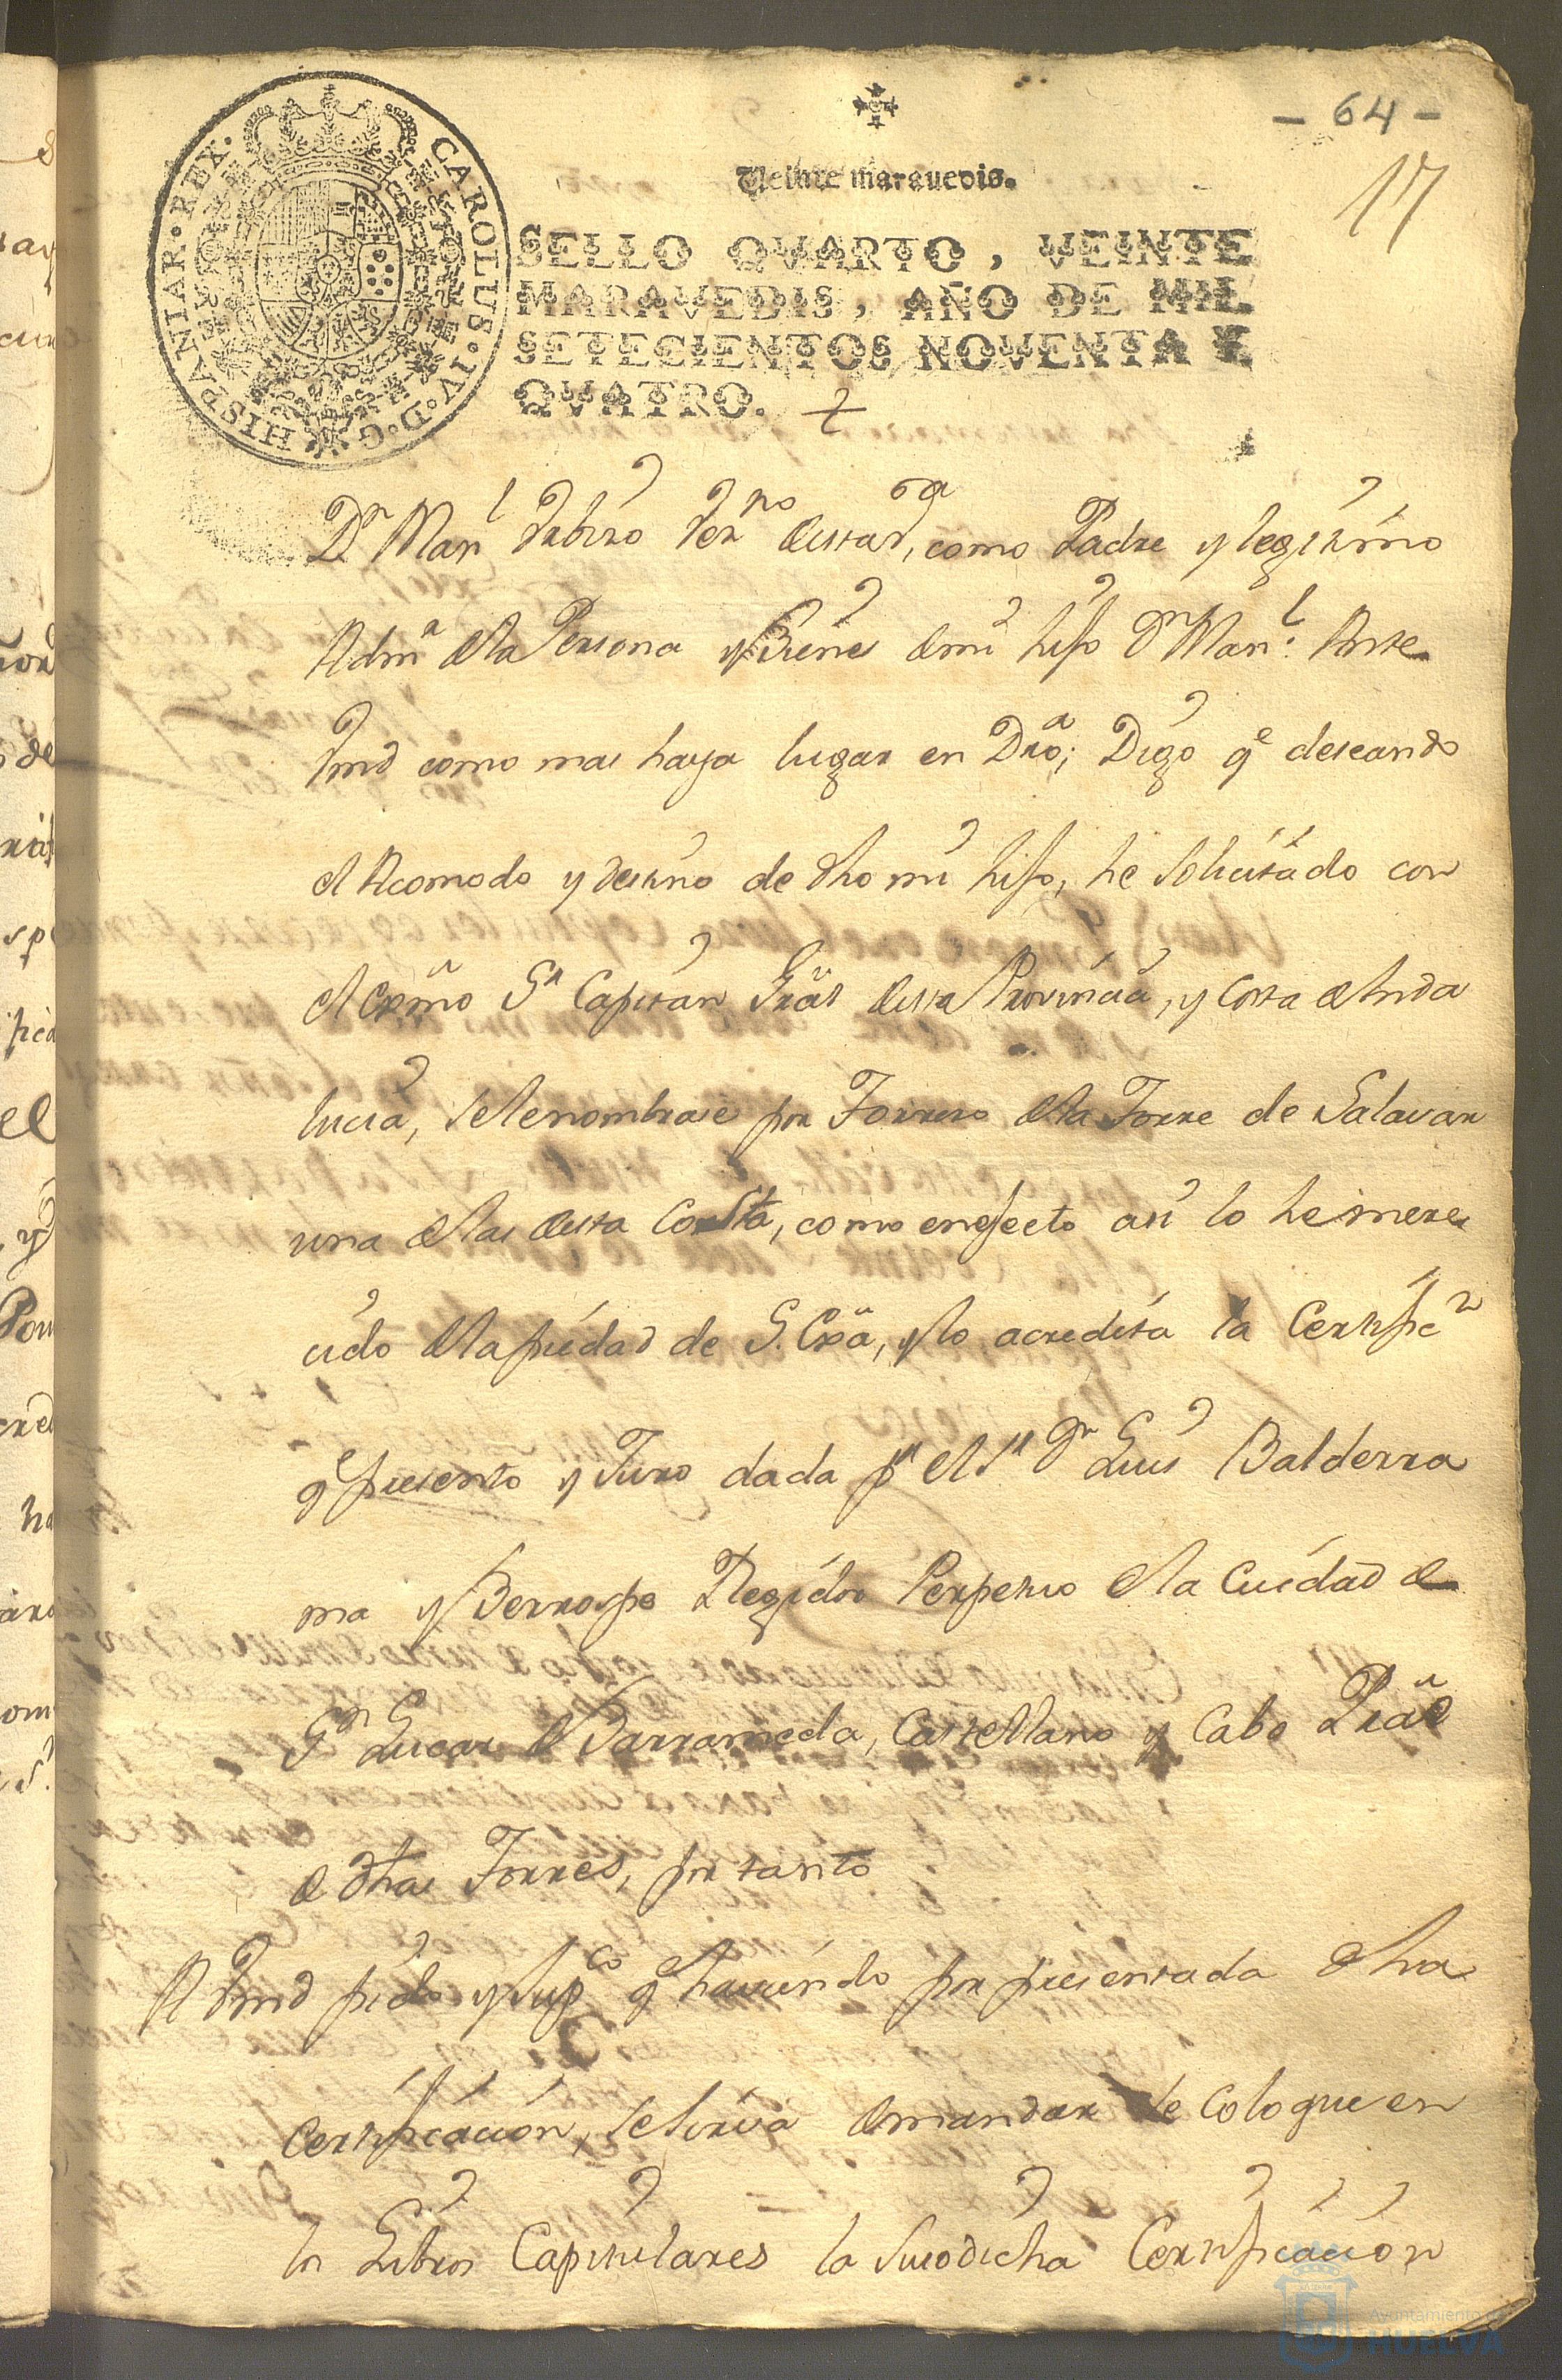 - 64 -
17
Veinte maravedis.
CAROLUS · IV · D · G · HISPANIAR · REX ·
SELLO QVARTO, VEINTE
MARAVEDIS, AÑO DE MIL
SETECIENTOS NOVENTA Y
QVATRO.
Dn Manl como Padre y legitimo
Admr dela Persona y Bienes demi hijo Dn Manl Ante
Vmd como mas haya lugar en Dro; Digo qe deseando
el Acomodo y destino de dho mi hijo, he solicitado con
el Exmo Sr Capitan Gral desta Provincia, y Costa de Anda
lucia, sele nombrase por Torrero dela Torre de Salavar
una delas desta Costa, como en efecto asi lo he mere
cido dela piedad de S. Exa, y lo acredita la Certificn
qe presento y Juro dada pr el Sr Dn Luis Balderra
ma y Berrospe Regidor Perpetuo dela Ciudad de
Sn Lucar de Barrameda, Castellano y Cabo Pral
de dhas Torres, por tanto
A Vmd pido y supco qe haviendo por presentada dha
Certificacion, se sirva demandar se coloque en
los Libros Capitulares la susodicha Certificacion
Ayuntamiento de
HUELVA